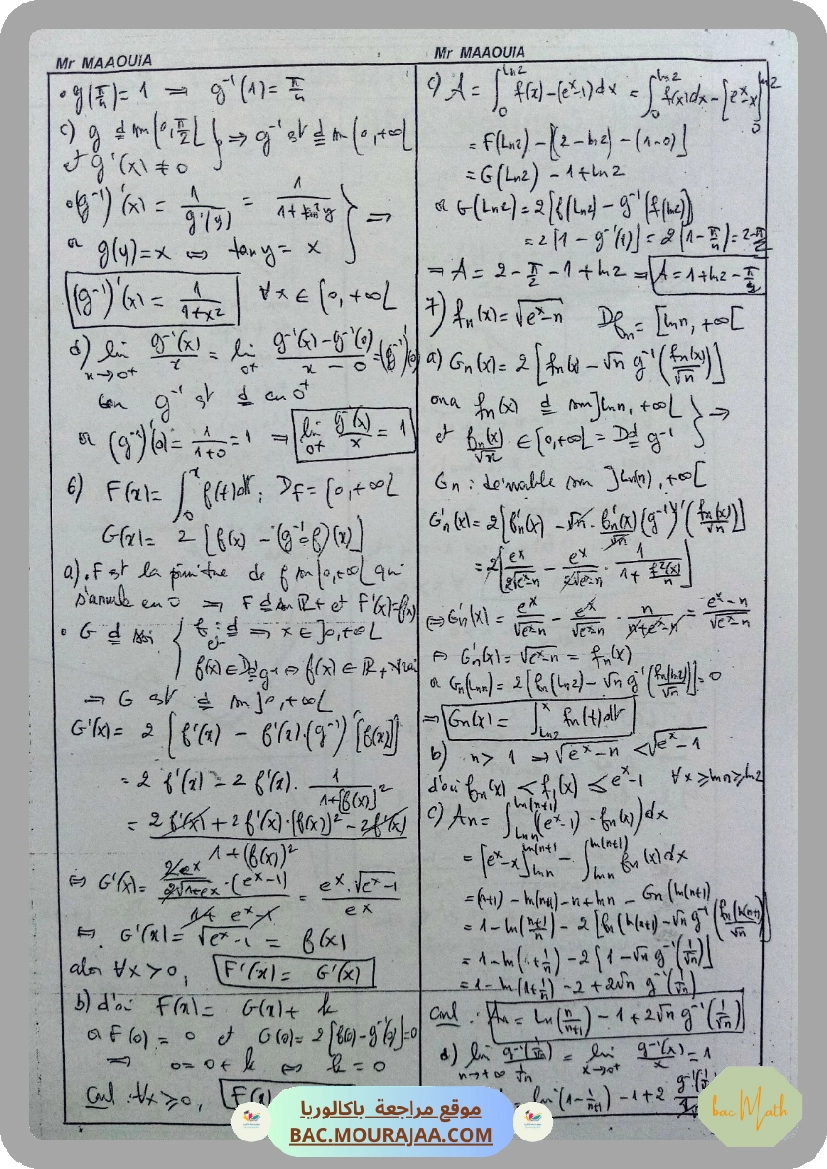 Mr MAAOUIA
• g(π/4) = 1 ⟹ g⁻¹(1) = π/4
c) g d sur [0, π/2[ } ⟹ g⁻¹ est d sur [0, +∞[
et g'(x) ≠ 0
• (g⁻¹)'(x) = 1/g'(y) = 1/(1+tan²y) } ⟹
or g(y) = x ⟺ tan y = x
(g⁻¹)'(x) = 1/(1+x²) ∀ x ∈ [0, +∞[
d) lim x→0⁺ g⁻¹(x)/x = lim 0⁺ (g⁻¹(x) - g⁻¹(0))/(x - 0) = (g⁻¹)'(0)
car g⁻¹ est d en 0⁺
or (g⁻¹)'(0) = 1/(1+0) = 1 ⟹ lim 0⁺ g⁻¹(x)/x = 1
6) F(x) = ∫₀ˣ f(t)dt ; D_F = [0, +∞[
G(x) = 2 [f(x) - (g⁻¹∘f)(x)]
a) • F est la primitive de f sur [0, +∞[ qui
s'annule en 0 ⟹ F d sur ℝ+ et F'(x) = f(x)
• G d ssi { f : d ⟹ x ∈ ]0, +∞[
f(x) ∈ Dd g⁻¹ ⟺ f(x) ∈ ℝ+ vrai
⟹ G est d sur ]0, +∞[
G'(x) = 2 [f'(x) - f'(x).(g⁻¹)'[f(x)]]
= 2 f'(x) - 2 f'(x) . 1/(1+[f(x)]²)
= (2f'(x) + 2 f'(x).(f(x))² - 2f'(x))/(1+(f(x))²)
⟺ G'(x) = (2eˣ/(2√(1+eˣ)) . (eˣ-1))/(1+eˣ-1) = eˣ.√(eˣ-1)/eˣ
⟺ G'(x) = √(eˣ-1) = f(x)
alors ∀x > 0, F'(x) = G'(x)
b) d'où F(x) = G(x) + k
or F(0) = 0 et G(0) = 2[f(0) - g⁻¹(0)] = 0
⟹ 0 = 0 + k ⟺ k = 0
Concl : ∀x ≥ 0, F(
Mr MAAOUIA
c) A = ∫₀^{ln2} f(x) - (eˣ-1)dx = ∫₀^{ln2} f(x)dx - [eˣ-x]₀^{ln2}
= F(ln2) - [(2 - ln2) - (1-0)]
= G(ln2) - 1 + ln2
or G(ln2) = 2[f(ln2) - g⁻¹(f(ln2))]
= 2[1 - g⁻¹(1)] = 2[1 - π/4] = 2 - π/2
⟹ A = 2 - π/2 - 1 + ln2 ⟹ A = 1 + ln2 - π/2
7) fₙ(x) = √(eˣ-n) Dfₙ = [ln n, +∞[
a) Gₙ(x) = 2 [fₙ(x) - √n g⁻¹(fₙ(x)/√n)]
ona fₙ(x) d sur ]ln n, +∞[ } ⟹
et fₙ(x)/√n ∈ [0, +∞[ = Dd g⁻¹
Gₙ : dérivable sur ]ln(n), +∞[
G'ₙ(x) = 2[f'ₙ(x) - √n . f'ₙ(x)/√n (g⁻¹)'(fₙ(x)/√n)]
= 2[eˣ/(2√(eˣ-n)) - eˣ/(2√(eˣ-n)) . 1/(1 + f²(x)/n)]
⟺ G'ₙ(x) = eˣ/√(eˣ-n) - eˣ/√(eˣ-n) . n/(n+eˣ-n) = (eˣ-n)/√(eˣ-n)
⟺ G'ₙ(x) = √(eˣ-n) = fₙ(x)
or Gₙ(ln n) = 2[fₙ(ln2) - √n g⁻¹(fₙ(ln2)/√n)] = 0
⟹ Gₙ(x) = ∫_{ln2}^x fₙ(t)dt
b) n > 1 ⟹ √(eˣ-n) < √(eˣ-1)
d'où fₙ(x) < f₁(x) ≤ eˣ-1 ∀x ≥ ln n ≥ ln2
c) Aₙ = ∫_{ln n}^{ln(n+1)} ((eˣ-1) - fₙ(x))dx
= [eˣ-x]_{ln n}^{ln(n+1)} - ∫_{ln n}^{ln(n+1)} fₙ(x)dx
= (n+1) - ln(n+1) - n + ln n - Gₙ(ln(n+1))
= 1 - ln((n+1)/n) - 2[fₙ(ln(n+1)) - √n g⁻¹(fₙ(ln(n+1))/√n)]
= 1 - ln(1+1/n) - 2[1 - √n g⁻¹(1/√n)]
= 1 - ln(1+1/n) - 2 + 2√n g⁻¹(1/√n)
Concl : Aₙ = ln(n/(n+1)) - 1 + 2√n g⁻¹(1/√n)
d) lim n→+∞ g⁻¹(1/√n)/(1/√n) = lim x→0⁺ g⁻¹(x)/x = 1
= lim (1 - 1/(n+1)) - 1 + 2 g⁻¹(1/√n)
موقع مراجعة باكالوريا
BAC.MOURAJAA.COM
bac Math